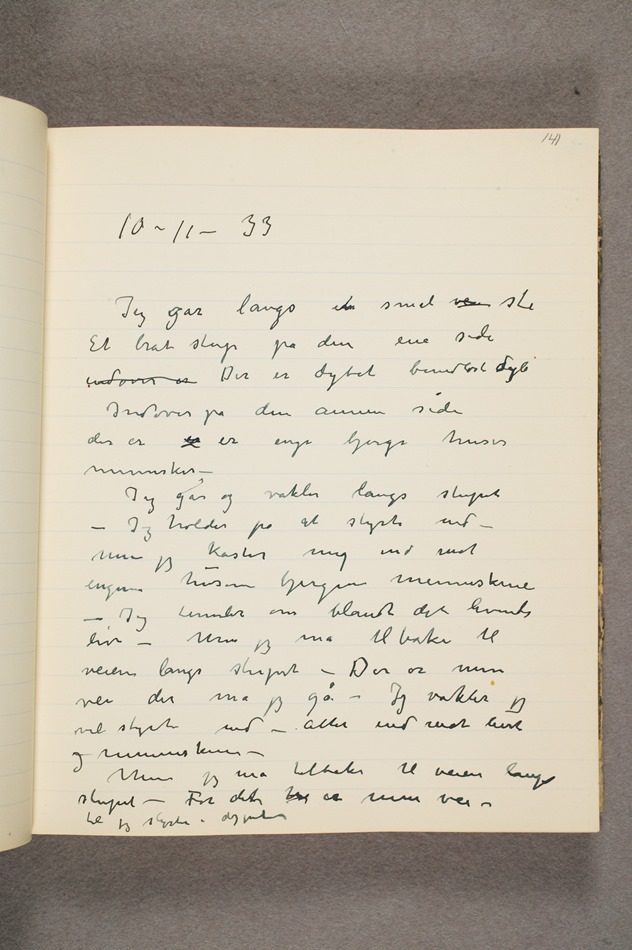 141
10-11- 33
Jeg går langs en smal vei sti
Et brat stup på den ene side
indover er Der er dybet bundløst dyb
Indover på den annen side
der er er enge bjerge huser
mennesker –
Jeg går og vakler langs stupet
– Jeg holder på at styrte ned –
men jeg kaster mig ind mot
engene husene bjergene menneskene
– Jeg tumler om blandt det levende
liv – Men jeg må tilbake til
veien langs stupet – Der er min
vei der må jeg gå – Jeg vakler jeg
vil styrte ned – atter ind mot livet
og menneskene –
Men jeg må tilbake til veien langs
stupet – For det er min vei –
til jeg styrter i dypet